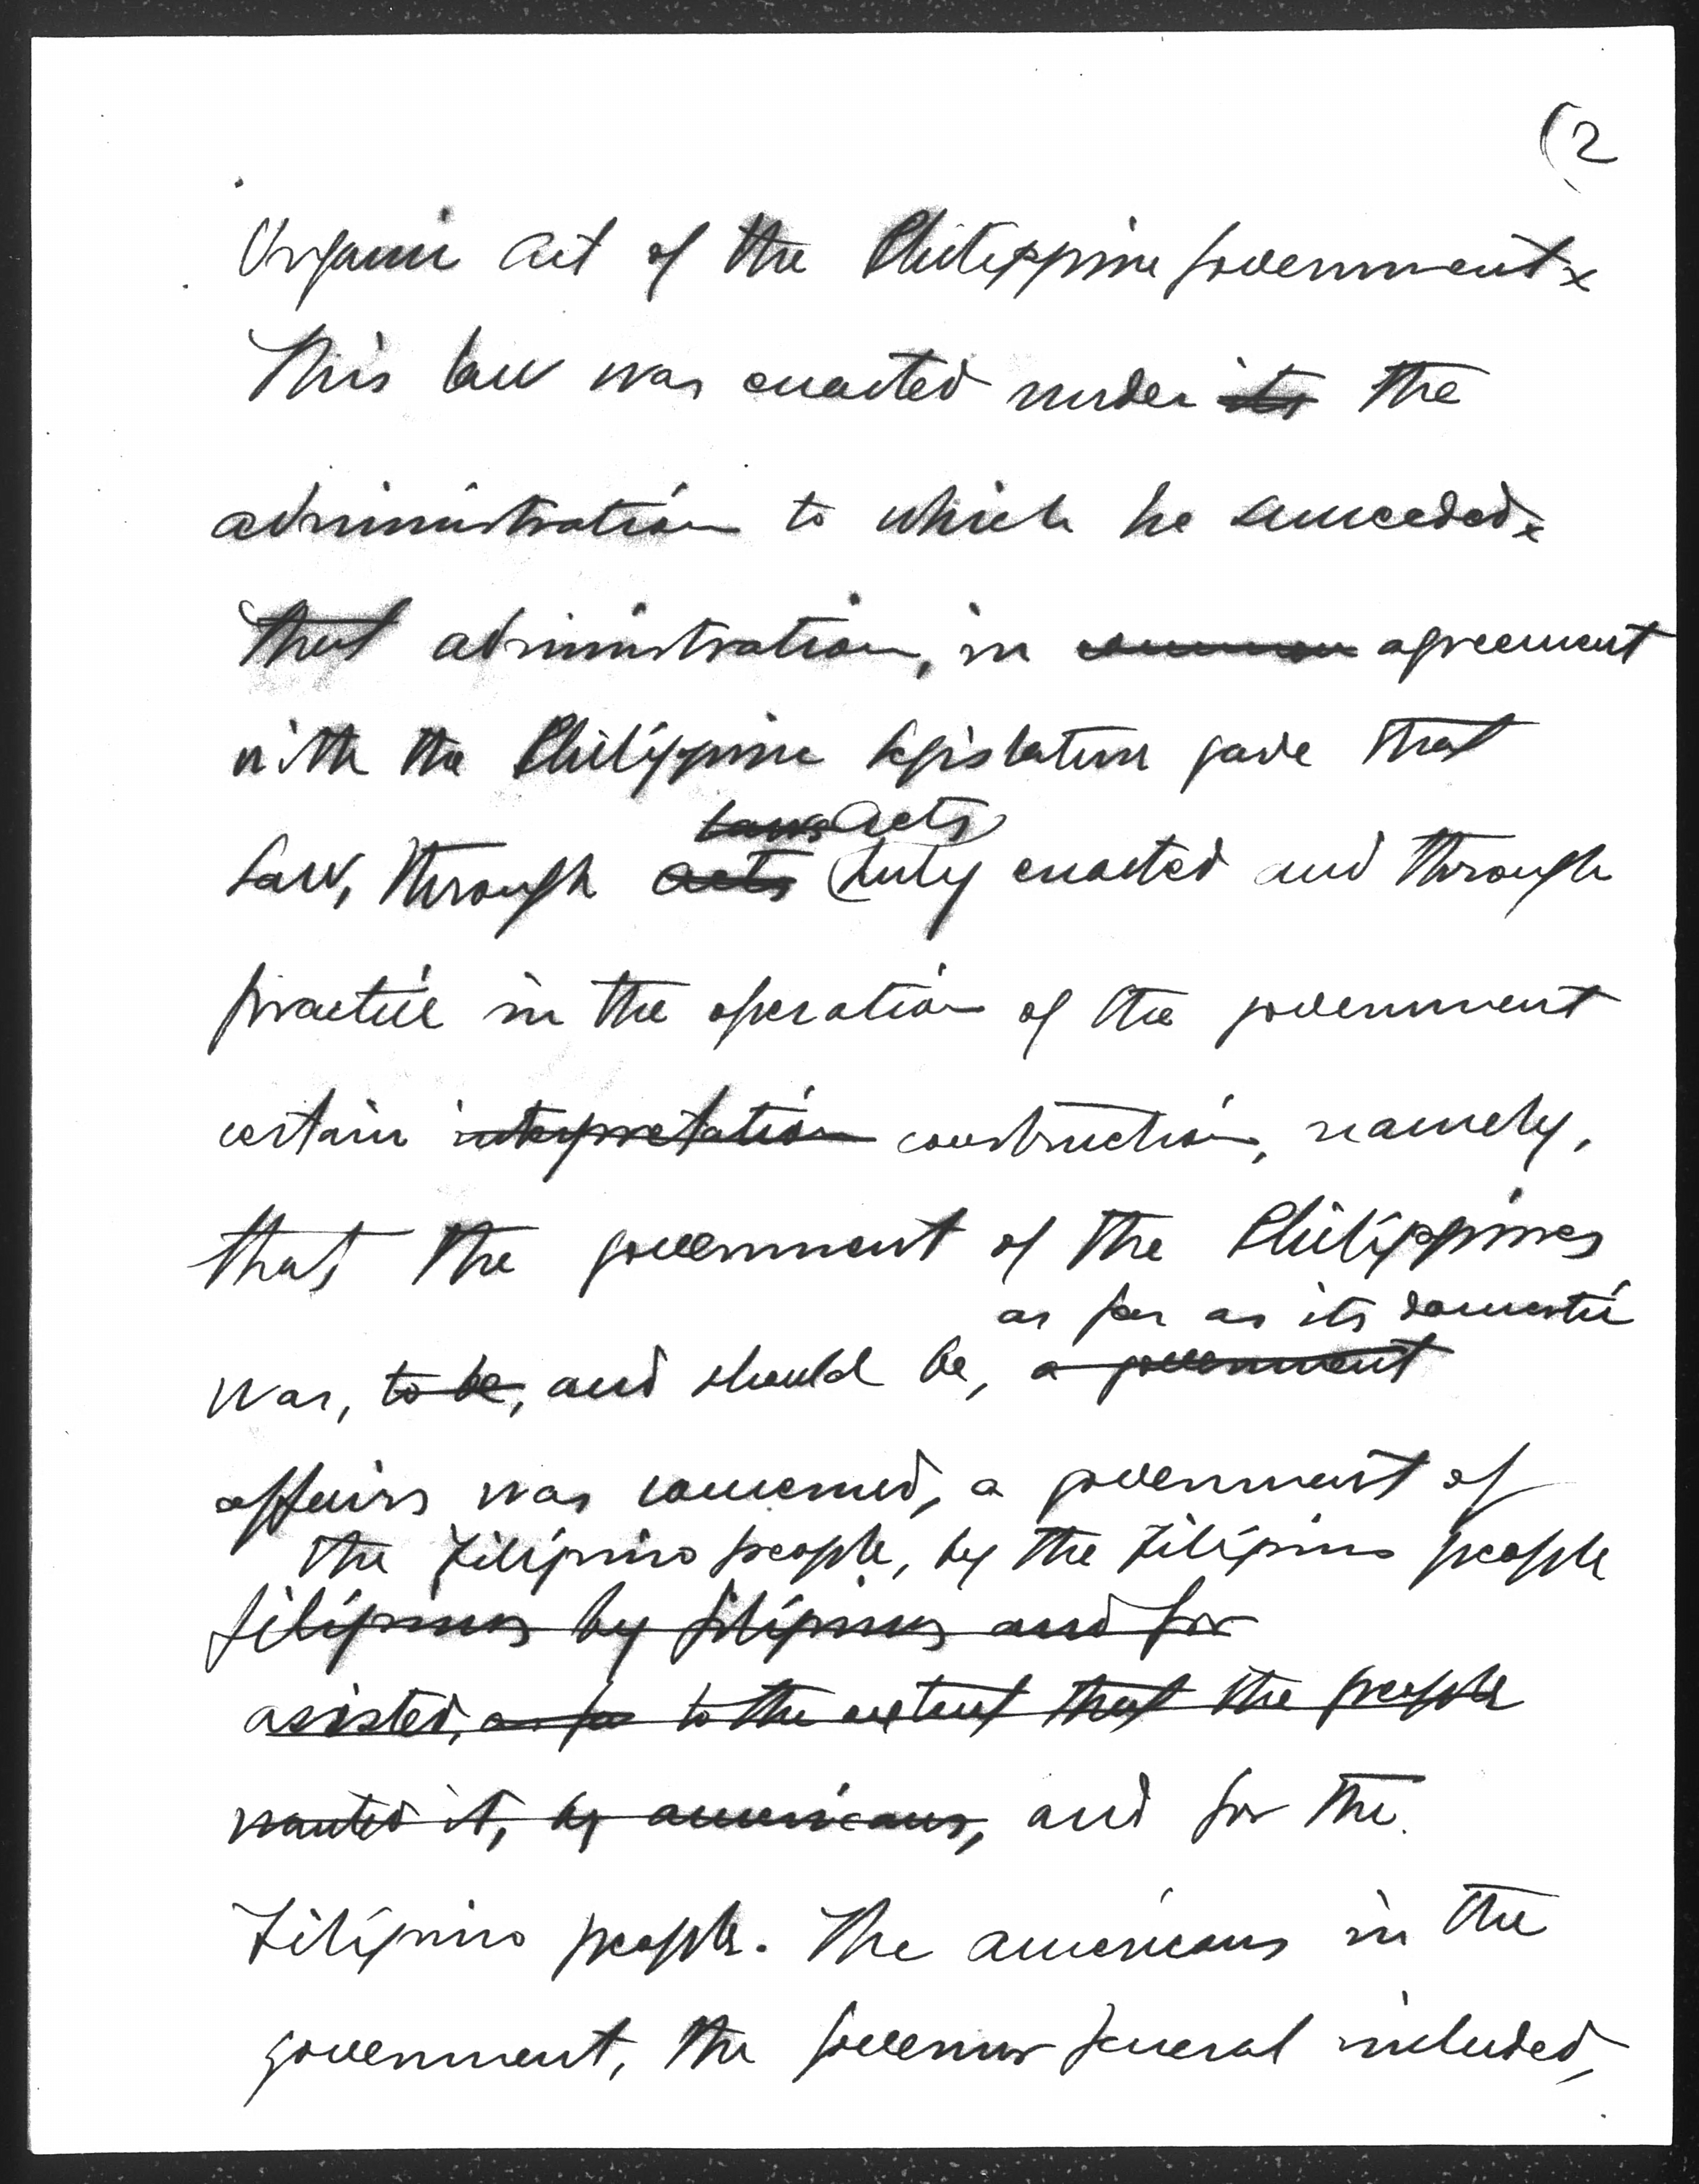 (2
Organic Act of the Philippine Government x
This law was enacted under its the
administration to which he succeeded x
That administration, in common agreement
with the Philippine legislature gave that
laws acts
law, through acts duly enacted and through
practice in the operation of the government
certain interpretation construction, namely,
that, the government of the Philippines
as far as its domestic
was, to be, and should be, a government
affairs was concerned, a government of
the Filipino people, by the Filipino people
filipinos by filipinos and for
asisted, as far to the extent that the people
wanted it, by americans, and for the
Filipino people. The americans in the
government, the Governor General included,